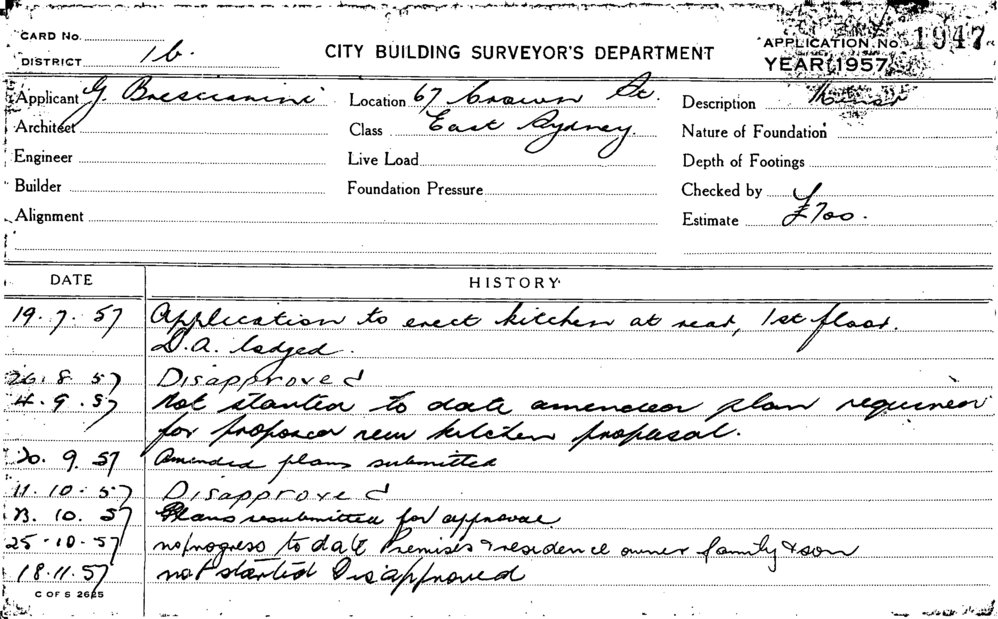 CARD No.
DISTRICT 1b
CITY BUILDING SURVEYOR'S DEPARTMENT
APPLICATION No. 1947
YEAR 1957
Applicant G. Brescianini
Location 67 Crown St.
Description Minor
Architect
Class East Sydney.
Nature of Foundation
Engineer
Live Load
Depth of Footings
Builder
Foundation Pressure
Checked by
Alignment
Estimate £700.
DATE HISTORY
19.7.57 Application to erect kitchen at rear, 1st floor.
D.A. lodged.
26.8.57 Disapproved
4.9.57 Not started to date amended plan required
for proposed new kitchen proposal.
20.9.57 Amended plans submitted
11.10.57 Disapproved
23.10.57 Plans resubmitted for approval
25-10-57 no progress to date Premises residence owner family & son
18.11.57 not started Disapproved
C OF S 2625